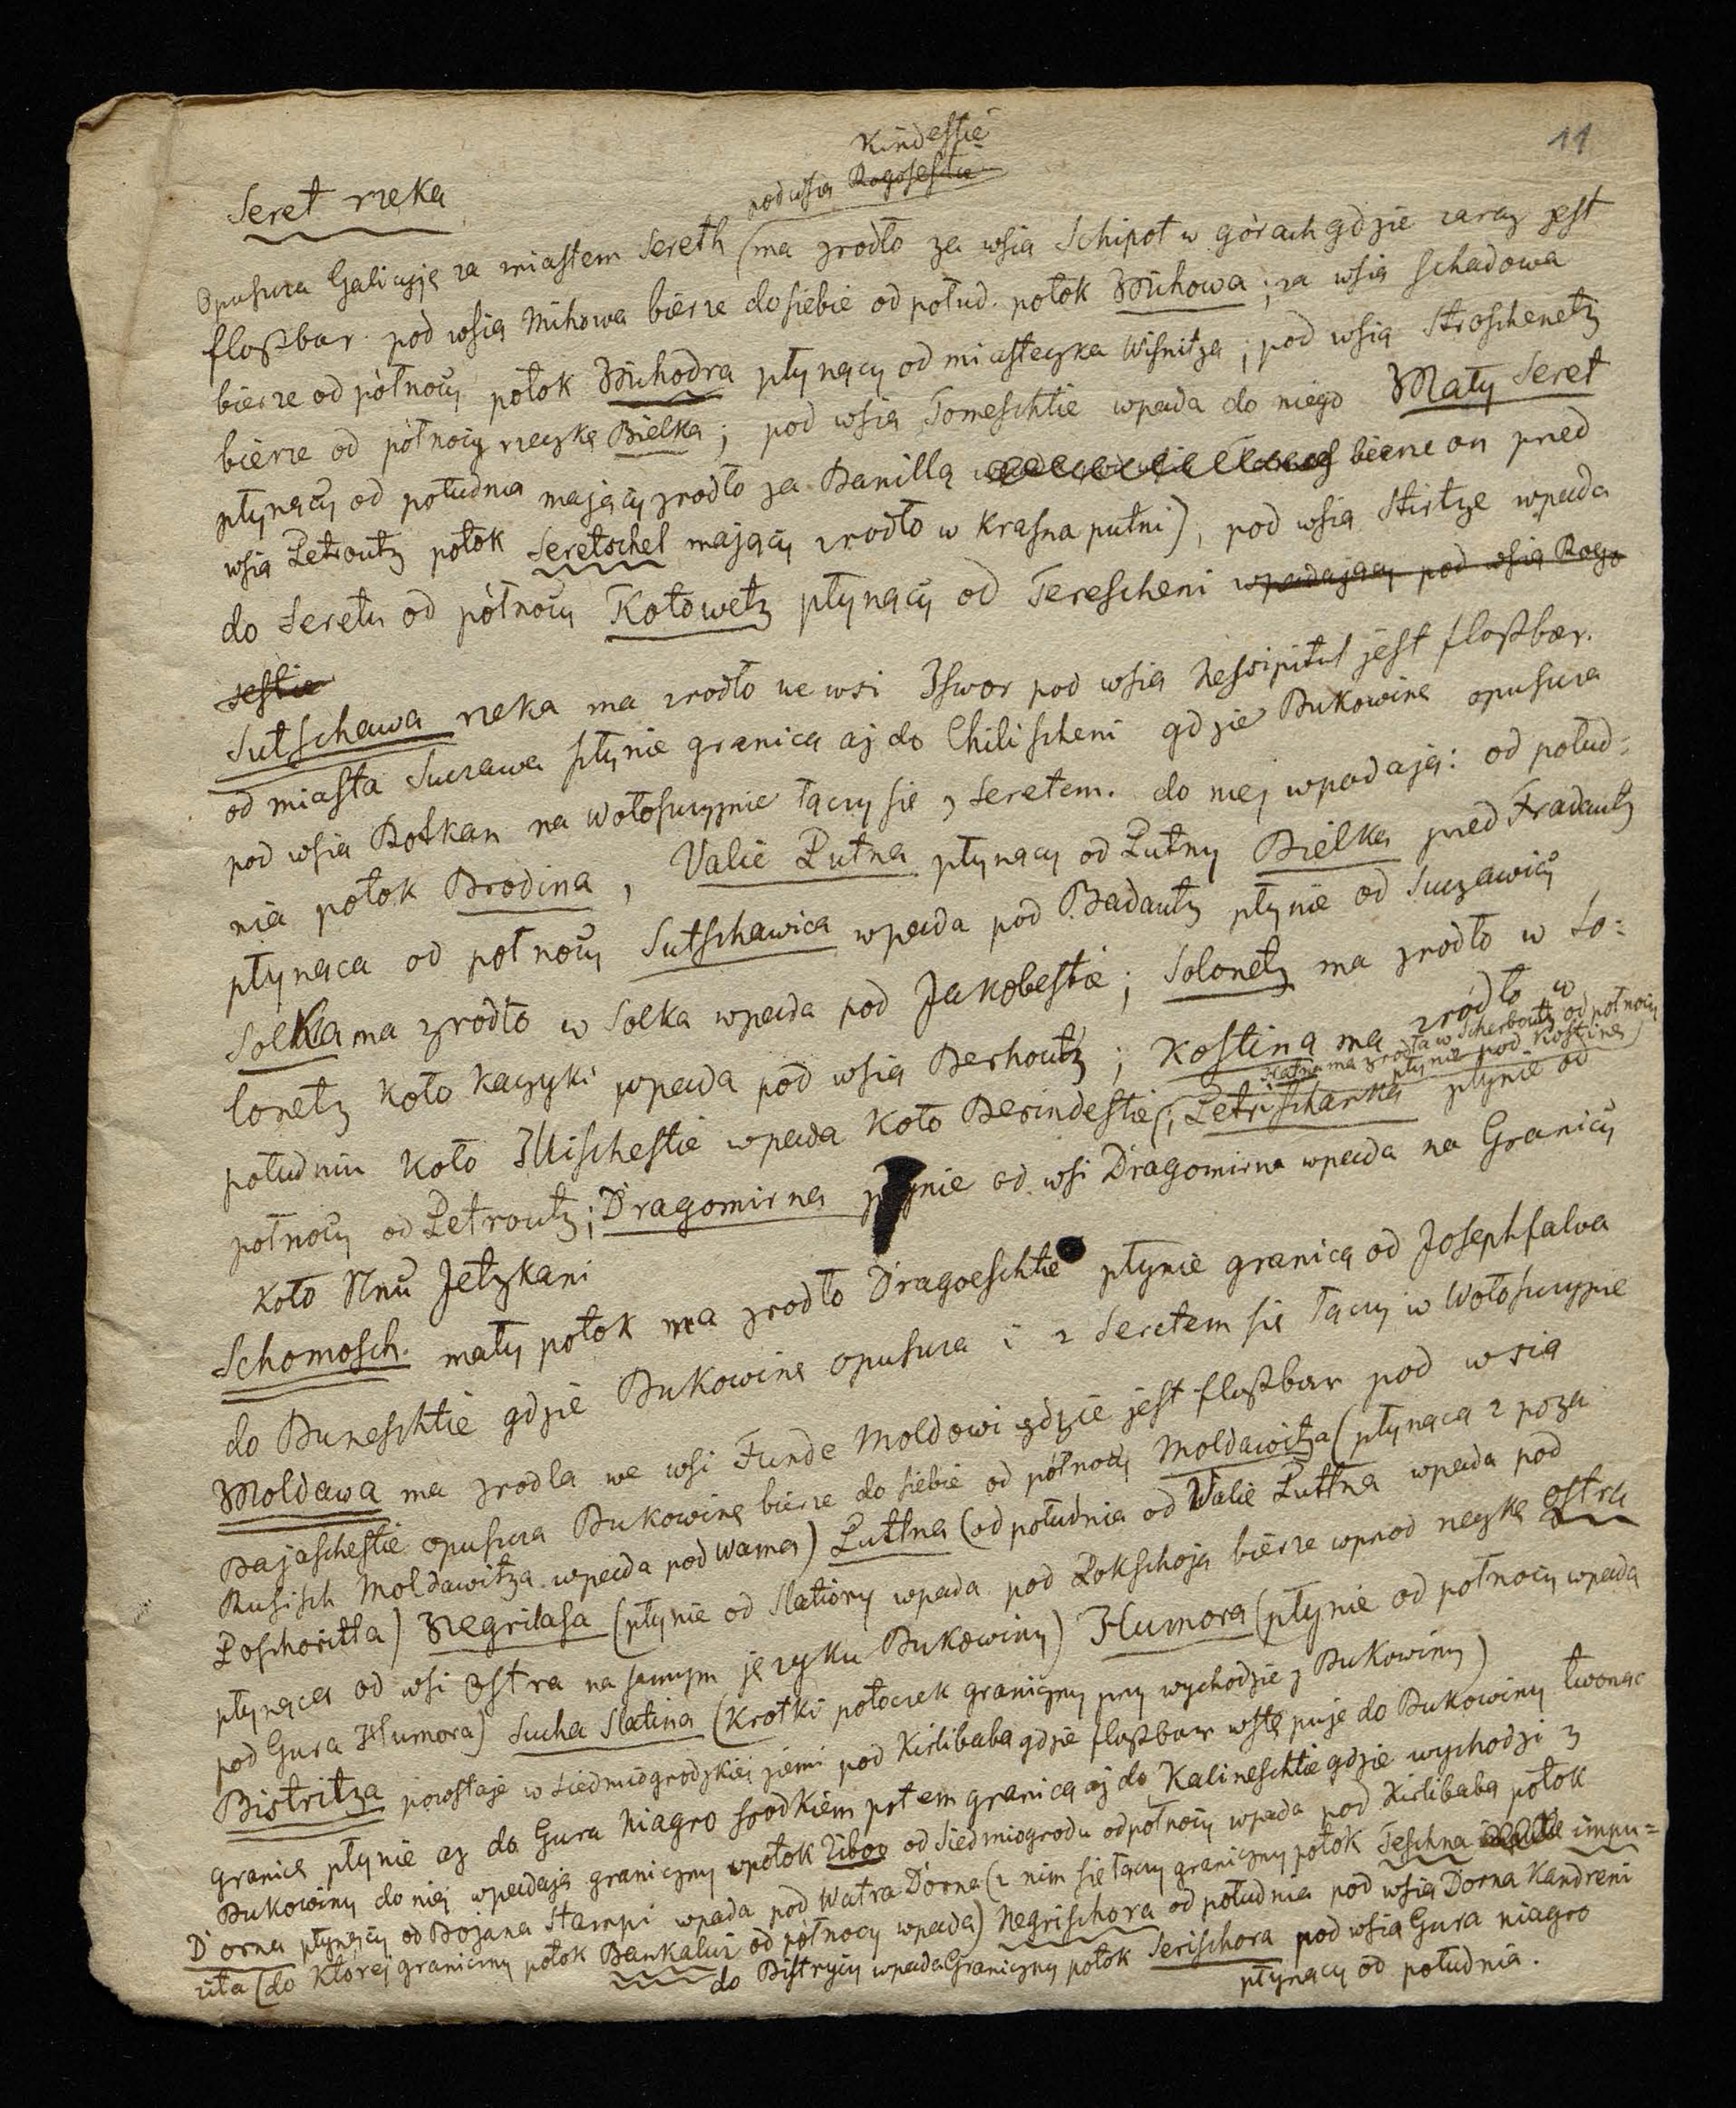 11
Kindestie
pod wsią Rogosestie
Seret rzeka
Opuszcza Galicyję za miastem Sereth (ma zrodło za wsią Schipot w górach gdzie zaraz jest
floßbar. pod wsią Mihowa bierze do siebie od połud. potok Mihowa; za wsią Schadowa
bierze od północy potok Michodra płynący od miasteczka Wisnitza; pod wsią Stroschenetz
bierze od północy rzeczkę Bielka; pod wsią Tomeschtie wpada do niego Mały Seret
płynący od południa mający zrodło za Banillą bierze on pried
wsią Petroutz potok Seretschel mający zrodło w Krasna putni), pod wsią Stirtze wpada
do Seretu od północy Kotowetz płynący od Terescheni wpadający pod wsią Rogo
sestie
Sutschawa rzeka ma zrodło we wsi Iswor pod wsią Nessipitul jest floßbar.
od miasta Suczawa płynie granicą aż do Chilischeni gdzie Bukowinę opuszcza
pod wsią Rotkan na Wołoszczyznie łączy się z Seretem. do niej wpadają: od połud=
nia potok Brodina, Valie Putna płynący od Putny Bielka pried Fradautz
płynąca od północy Sutschawica wpada pod Badautz płynie od Suczawicy
Solka ma zrodło w Solka wpada pod Jakobestie; Solonetz ma zrodło w So=
lonetz koło Kaczyki wpada pod wsią Berhoutz; Kostina ma zródło w
Hatna ma zrodła w Scherboutz od północy
płynie pod Kostiną)
południu koło Illischestie wpada koło Berindestie(; Petrischanka płynie od
północy od Petroutz; Dragomirna płynie od wsi Dragomirna wpada na Granicy
koło Itzkani
Schomosch. mały potok ma zrodło Dragoeschtie płynie granicą od Josephfalva
do Buneschtie gdzie Bukowinę opuszcza i z Seretem się łączy w Wołoszczyznie
Moldawa ma zrodla we wsi Funde Moldowi gdzie jest floßbar pod wsią
Bajaschestie opuszcza Bukowinę bierze do siebie od północy Moldawitza (płynąca z poza
Rusisch Moldawitza wpada pod Wama) Puttna (od południa od Valie Puttna wpada pod
Poschoritta) Negrilasa (płynie od Slatiory wpada pod Pokschoja bierze wprzod rzeczkę Ostra
płynąca od wsi Ostra na samym języku Bukowiny) Humora (płynie od północy wpada
pod Gura Humora) Sucha Slatina (krotki potoczek graniczny przy wychodzie z Bukowiny)
Bistritza powstaje w Siedmiogrodzkiej ziemi pod Kirlibaba gdzie floßbar wstępuje do Bukowiny tworząc
granicę płynie aż do Gura Niagro srodkiem potem granicą aż do Kalineschtie gdzie wychodzi z
Bukowiny do niej wpadają graniczny potok Ziboo od Siedmiogrodu od północy wpada pod Kirlibaba potok
Dorna płynący od Bojana Stampi wpada pod Watra Dorna (z nim się łączy graniczny potok Teschna impu=
zita (do której graniczny potok Bankaluj od północy wpada) Negrischora od południa pod wsią Dorna Kandreni
do Bistrycy wpada Graniczny potok Serischora pod wsią Gura niagro
płynący od południa.